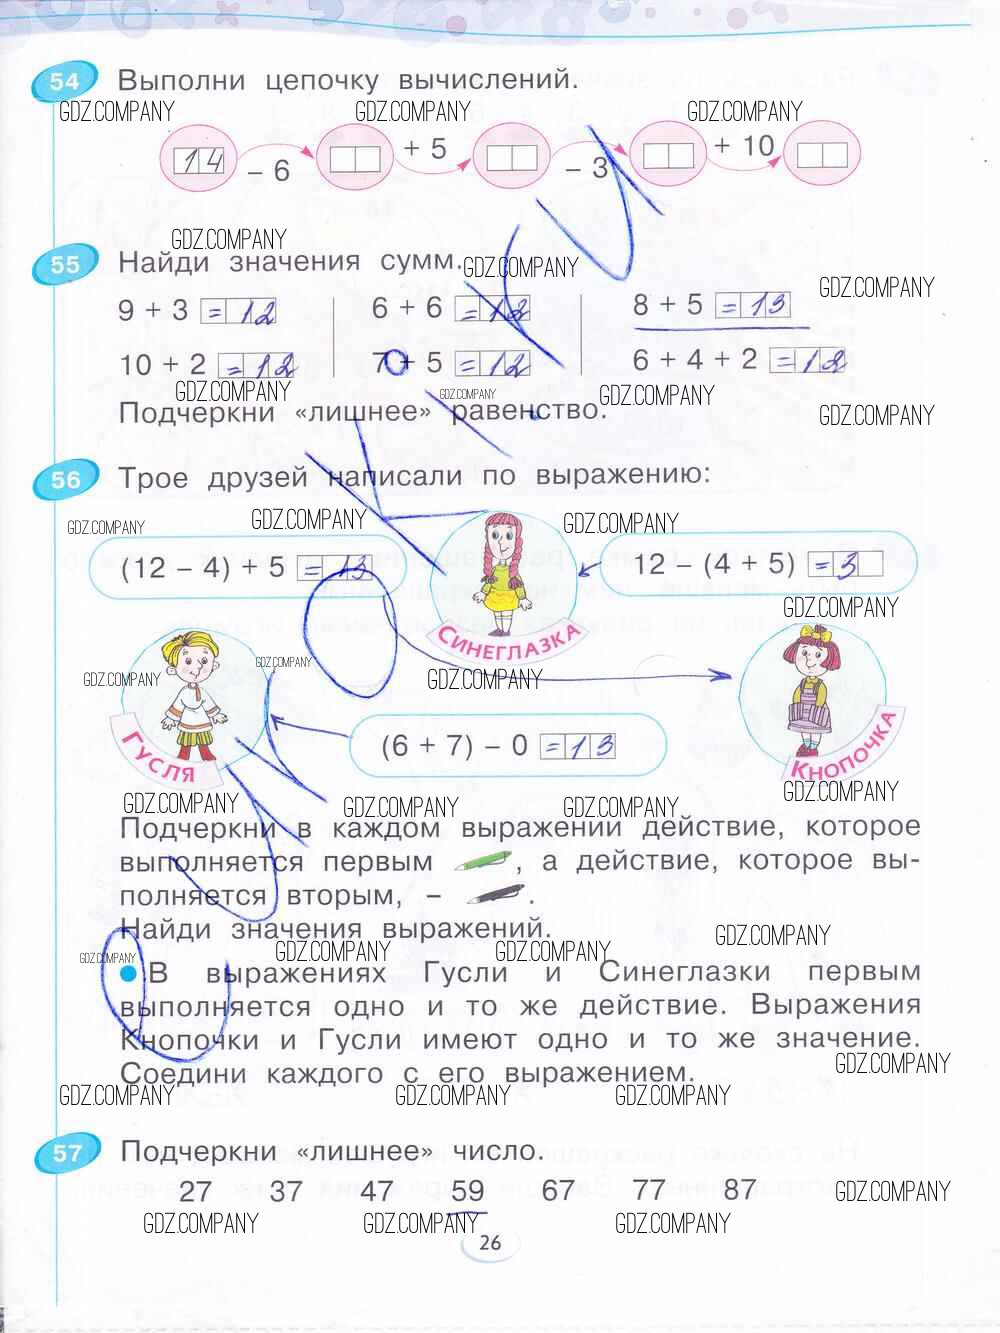 54 Выполни цепочку вычислений.
GDZ.COMPANY GDZ.COMPANY GDZ.COMPANY
14 – 6 + 5 – 3 + 10
GDZ.COMPANY
55 Найди значения сумм.
GDZ.COMPANY
GDZ.COMPANY
9 + 3 = 12 6 + 6 = 12 8 + 5 = 13
10 + 2 = 12 7 + 5 = 12 6 + 4 + 2 = 12
GDZ.COMPANY GDZ.COMPANY GDZ.COMPANY
Подчеркни «лишнее» равенство.
GDZ.COMPANY
56 Трое друзей написали по выражению:
GDZ.COMPANY GDZ.COMPANY GDZ.COMPANY
(12 – 4) + 5 = 13 12 – (4 + 5) = 3
GDZ.COMPANY
СИНЕГЛАЗКА
GDZ.COMPANY GDZ.COMPANY GDZ.COMPANY
(6 + 7) – 0 = 13
ГУСЛЯ КНОПОЧКА
GDZ.COMPANY GDZ.COMPANY GDZ.COMPANY GDZ.COMPANY
Подчеркни в каждом выражении действие, которое
выполняется первым , а действие, которое вы-
полняется вторым, – .
Найди значения выражений.
GDZ.COMPANY
GDZ.COMPANY GDZ.COMPANY GDZ.COMPANY
В выражениях Гусли и Синеглазки первым
выполняется одно и то же действие. Выражения
Кнопочки и Гусли имеют одно и то же значение.
GDZ.COMPANY
Соедини каждого с его выражением.
GDZ.COMPANY GDZ.COMPANY GDZ.COMPANY
57 Подчеркни «лишнее» число.
27 37 47 59 67 77 87
GDZ.COMPANY
GDZ.COMPANY GDZ.COMPANY GDZ.COMPANY
26